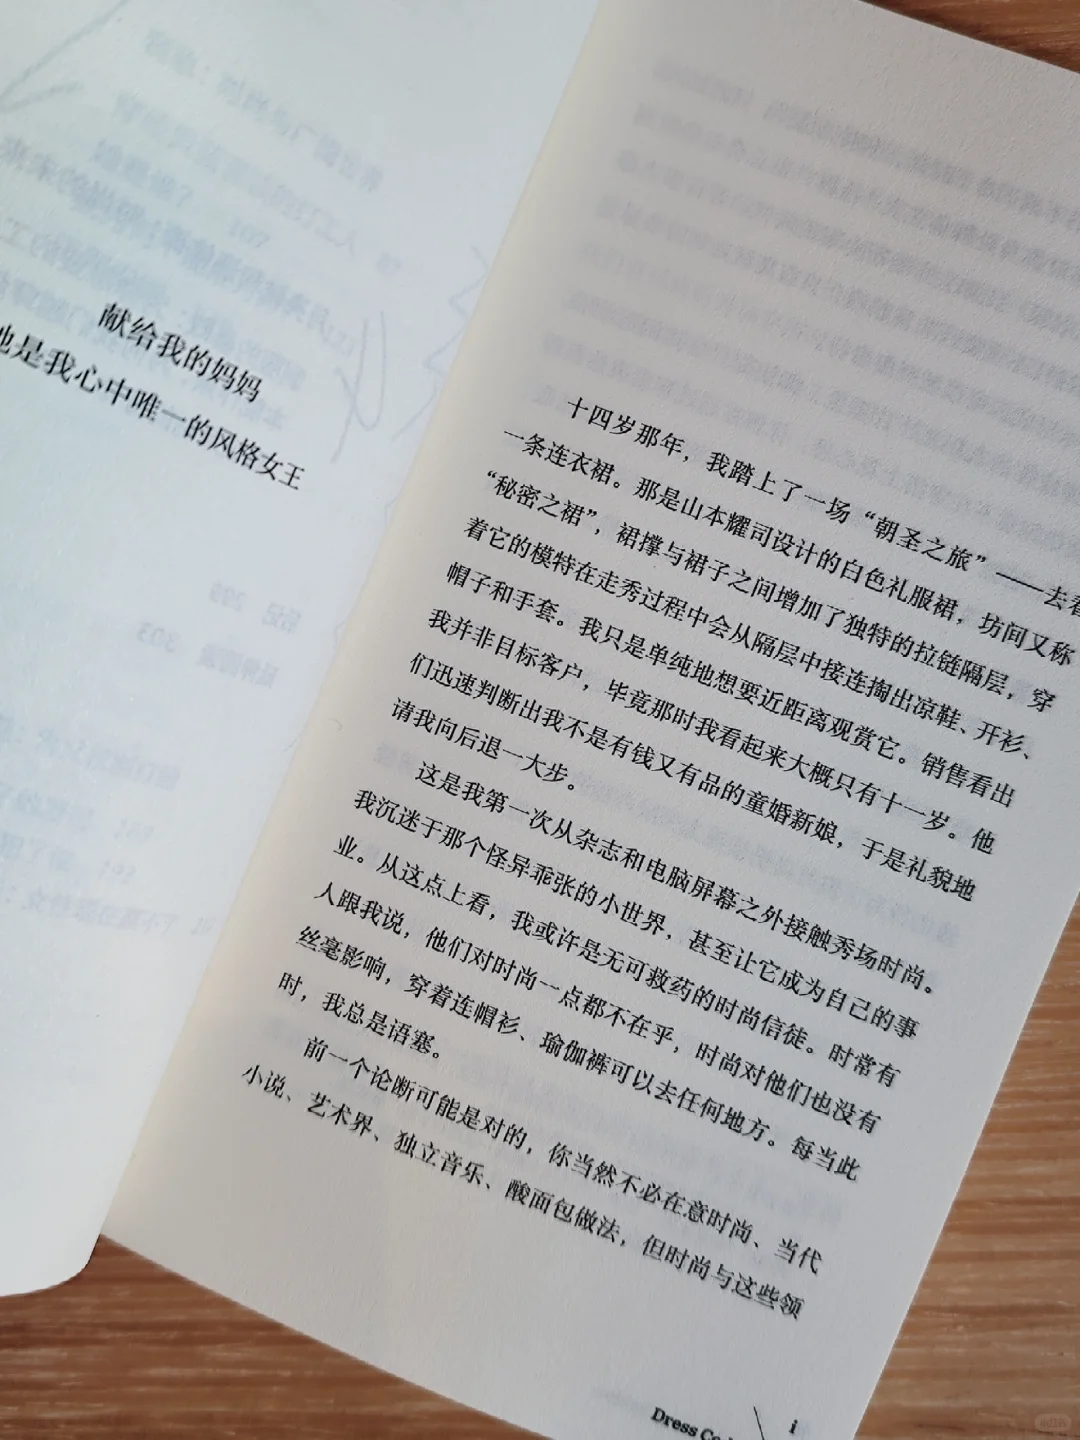 献给我的妈妈
她是我心中唯一的风格女王
十四岁那年，我踏上了一场“朝圣之旅”——去看
一条连衣裙。那是山本耀司设计的白色礼服裙，坊间又称
“秘密之裙”，裙撑与裙子之间增加了独特的拉链隔层，穿
着它的模特在走秀过程中会从隔层中接连掏出凉鞋、开衫、
帽子和手套。我只是单纯地想要近距离观赏它。销售看出
我并非目标客户，毕竟那时我看起来大概只有十一岁。他
们迅速判断出我不是有钱又有品的童婚新娘，于是礼貌地
请我向后退一大步。
这是我第一次从杂志和电脑屏幕之外接触秀场时尚。
我沉迷于那个怪异乖张的小世界，甚至让它成为自己的事
业。从这点上看，我或许是无可救药的时尚信徒。时常有
人跟我说，他们对时尚一点都不在乎，时尚对他们也没有
丝毫影响，穿着连帽衫、瑜伽裤可以去任何地方。每当此
时，我总是语塞。
前一个论断可能是对的，你当然不必在意时尚、当代
小说、艺术界、独立音乐、酸面包做法，但时尚与这些领
Dress
i